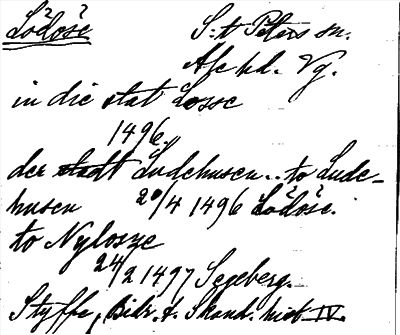 Lödöse S:t Peters sn.
Ale hd. Vg.
in die stat Losse
1496.
der stadt Ludehusen.. to Lude-
husen 20/4 1496 Lödöse.
to Nylosze
24/2 1497 Segeberg.
Styffe, Bidr. t. Skand. hist. IV.